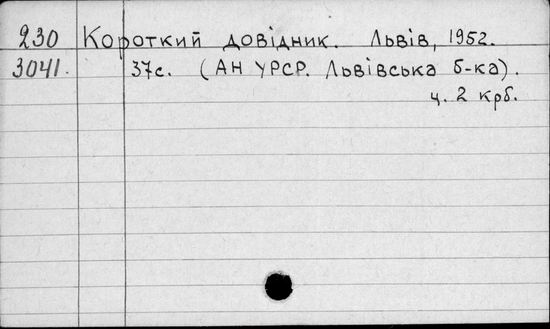 230 Короткий довідник. Львів, 1952.
3041. 37с. (АН УРСР. Львівська б-ка).
ц. 2 крб.